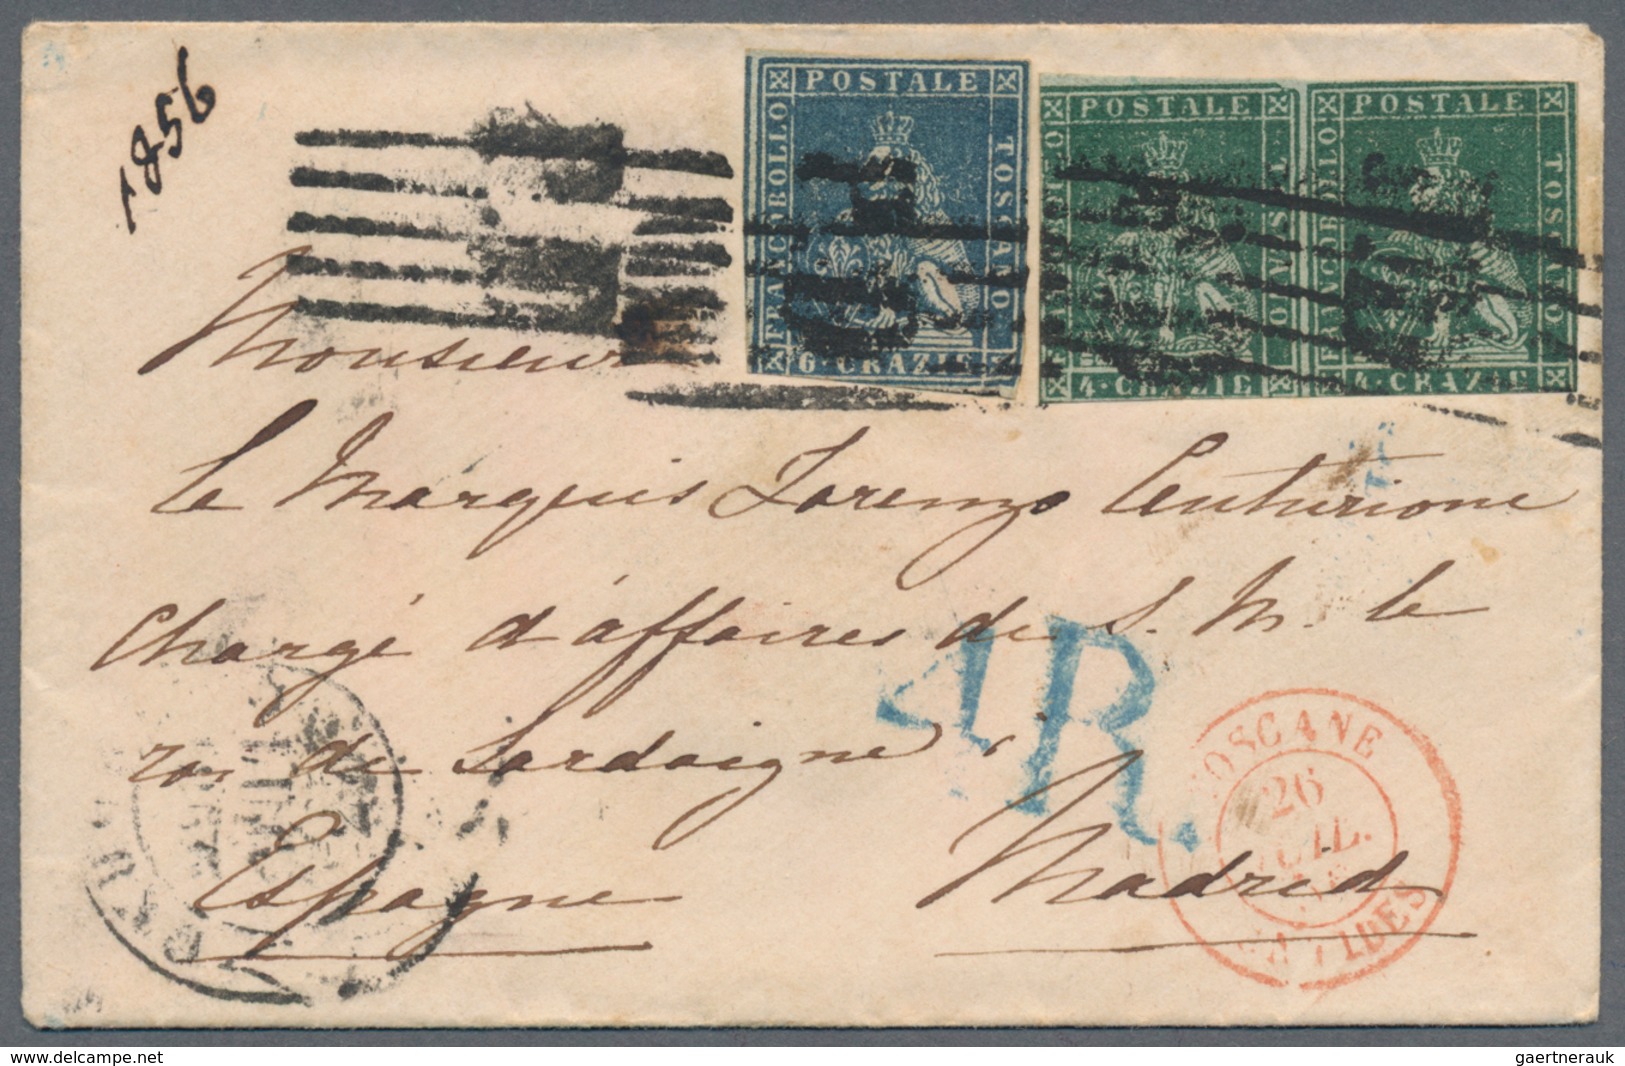 1856
POSTALE
FRANCOBOLLO
TOSCANO
6·CRAZIE
POSTALE
4·CRAZIE
POSTALE
FRANCOBOLLO
TOSCANO
4·CRAZIE
Monsieur
le Marquis Lorenzo Centurione
Chargé d'affaires de S. M. le
roi de Sardaigne
Espagne Madrid
4R.
TOSCANE
26
JUIL.
www.delcampe.net
gaertnerauk